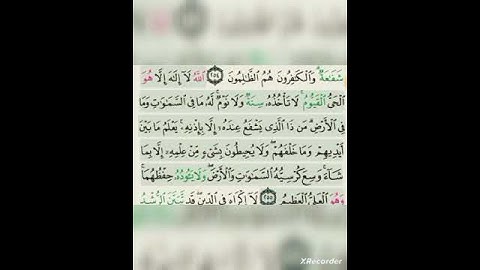 شَفَـٰعَةٌ ۗ وَٱلْكَـٰفِرُونَ هُمُ ٱلظَّـٰلِمُونَ ٢٥٤ ٱللَّهُ لَآ إِلَـٰهَ إِلَّا هُوَ
ٱلْحَىُّ ٱلْقَيُّومُ ۚ لَا تَأْخُذُهُۥ سِنَةٌ وَلَا نَوْمٌ ۚ لَّهُۥ مَا فِى ٱلسَّمَـٰوَٰتِ وَمَا
فِى ٱلْأَرْضِ ۗ مَن ذَا ٱلَّذِى يَشْفَعُ عِندَهُۥٓ إِلَّا بِإِذْنِهِۦ ۚ يَعْلَمُ مَا بَيْنَ
أَيْدِيهِمْ وَمَا خَلْفَهُمْ ۖ وَلَا يُحِيطُونَ بِشَىْءٍ مِّنْ عِلْمِهِۦٓ إِلَّا بِمَا
شَآءَ ۚ وَسِعَ كُرْسِيُّهُ ٱلسَّمَـٰوَٰتِ وَٱلْأَرْضَ ۖ وَلَا يَـُٔودُهُۥ حِفْظُهُمَا ۚ
وَهُوَ ٱلْعَلِىُّ ٱلْعَظِيمُ ٢٥٥ لَآ إِكْرَاهَ فِى ٱلدِّينِ ۖ قَد تَّبَيَّنَ ٱلرُّشْدُ
XRecorder